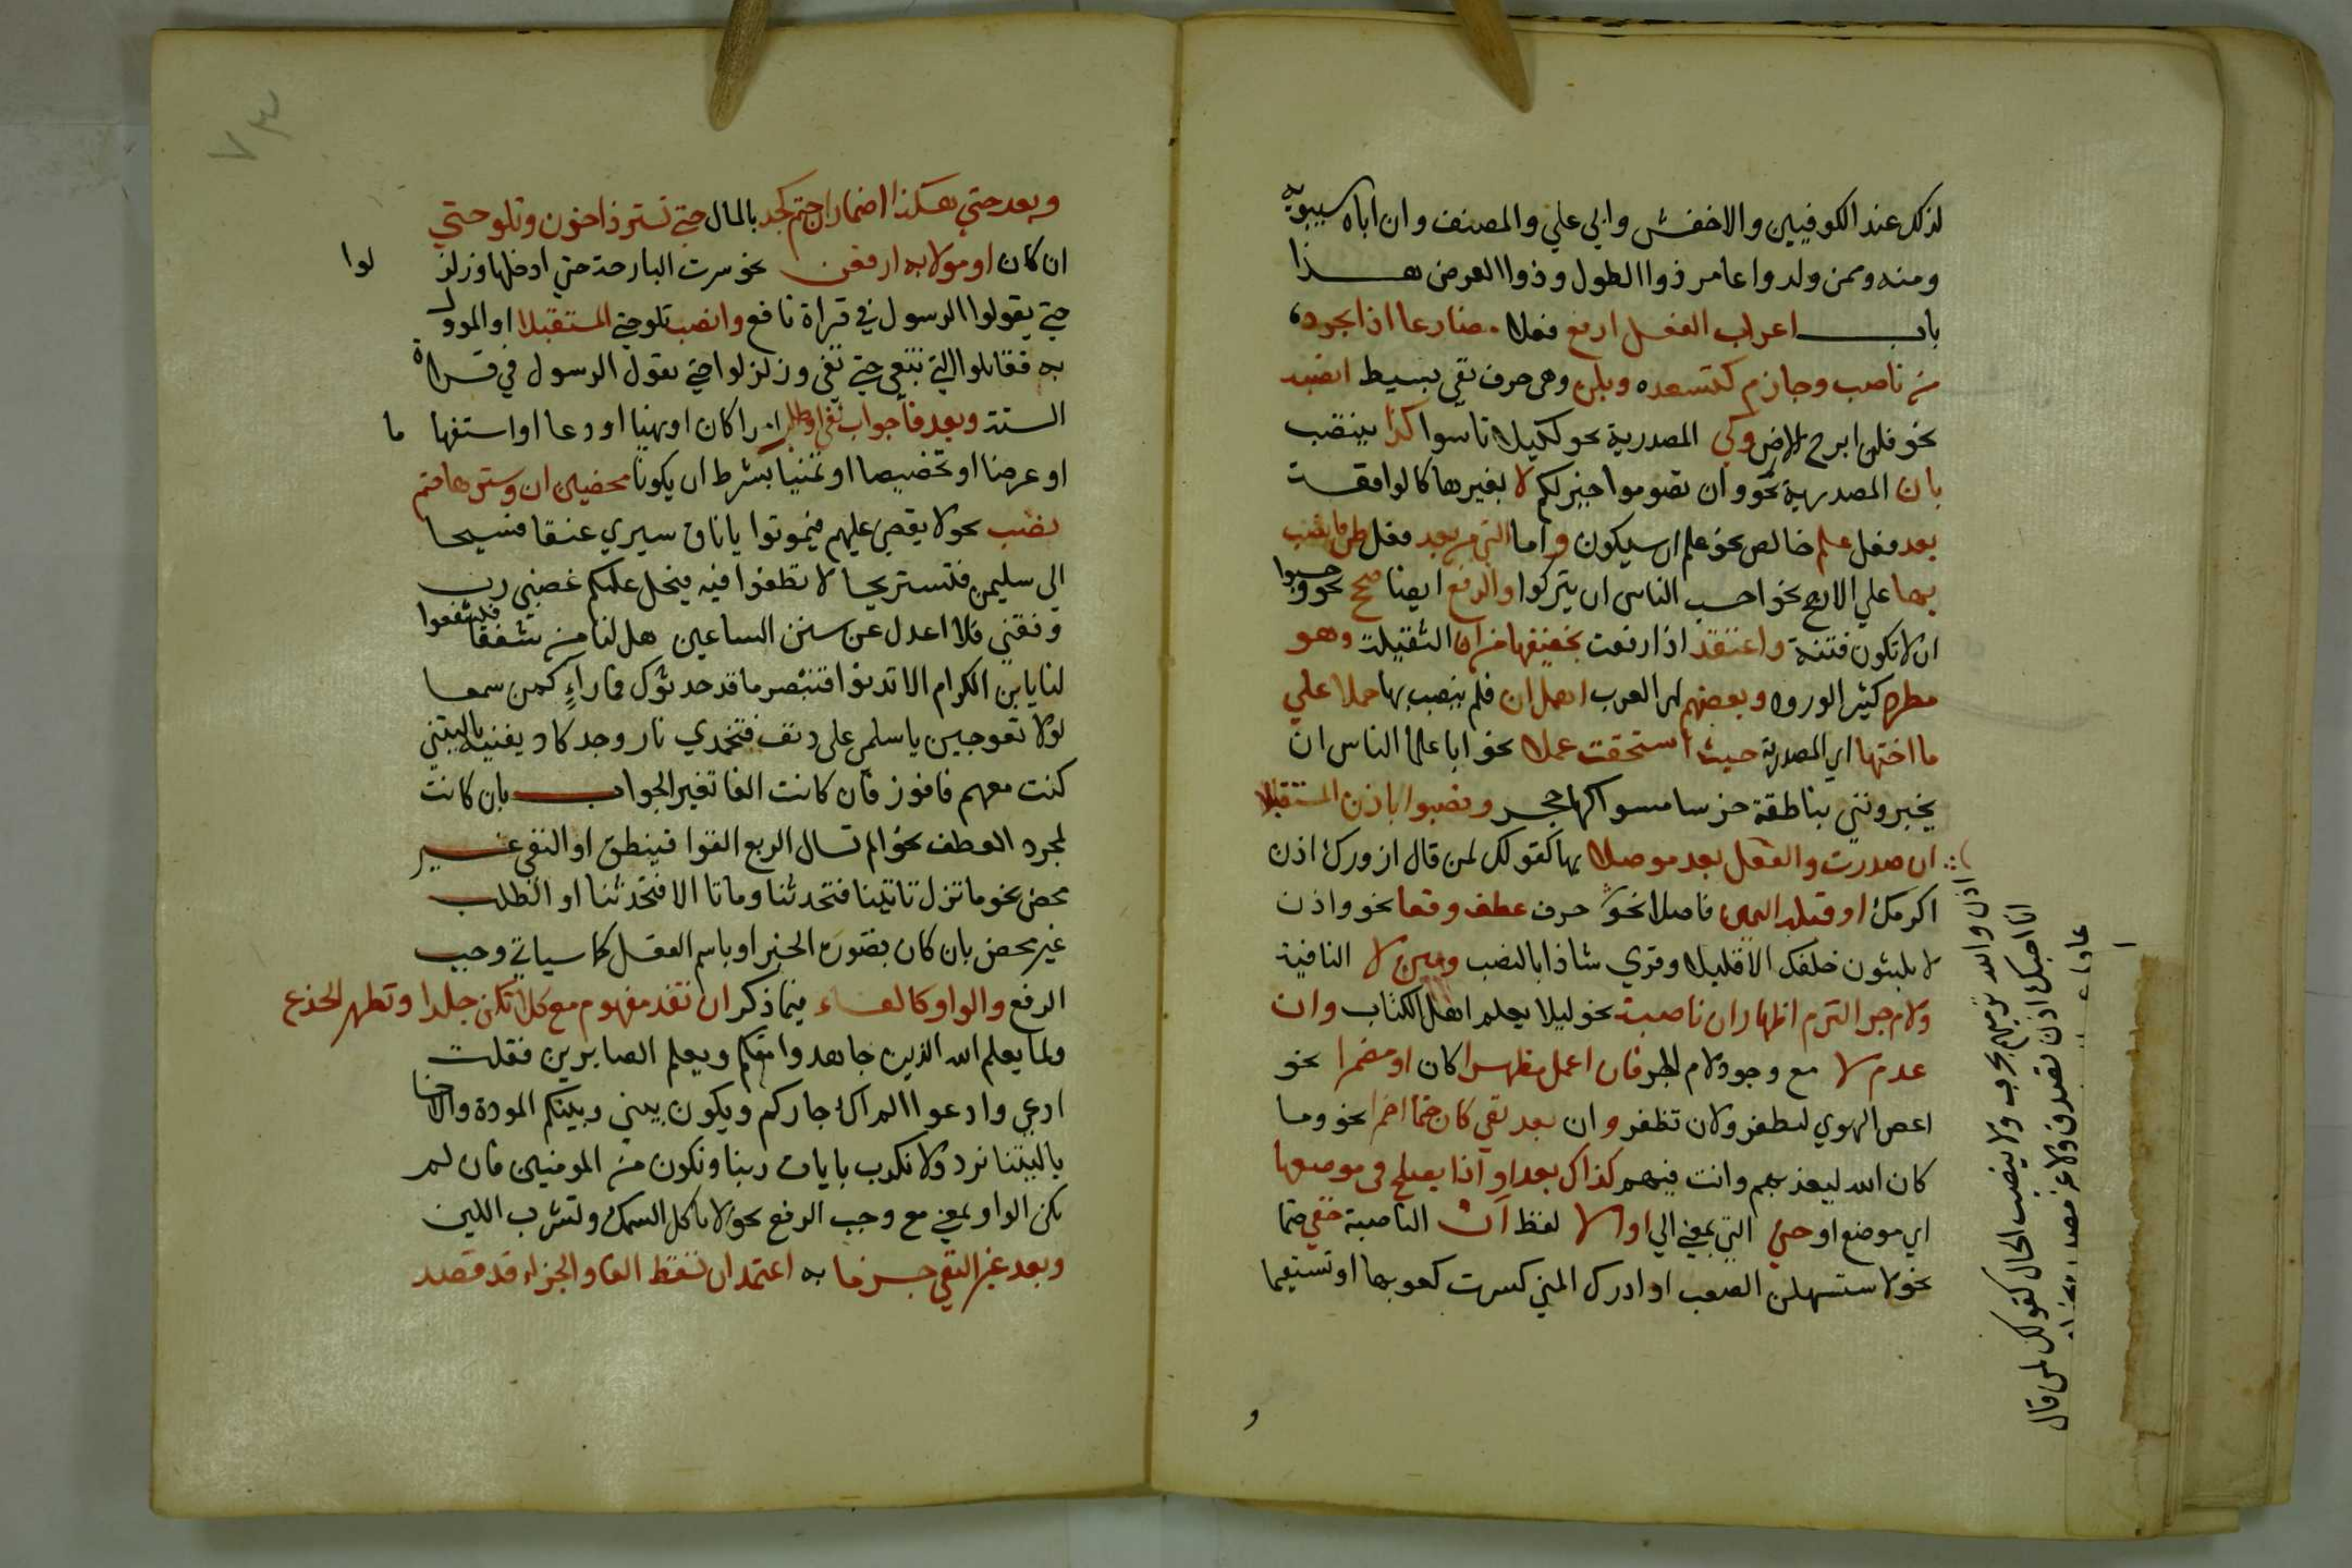 لذلك عند الكوفيين والاخفش وابي علي والمصنف وان اباه سيبويه
ومنه وممن ولدوا عامر ذوا الطول وذوا العرض هـــذا
بابـــ اعراب الفعل ارفع فعلا مضارعا اذا يجرد
من ناصب وجازم كتسعد وبلن وهي حرف نفي بسيط انصبه
نحو فلن ابرح الارض وكي المصدرية نحو لكيلا تاسوا كذا ينتصب
بان المصدرية نحو وان تصوموا خير لكم لا بغيرها كالواقعــة
بعد فعل علم خالص نحو علم ان سيكون واما التي من بعد فعل ظن فانصب
بها علي الارجح نحو احسب الناس ان يتركوا والرفع ايضا صح نحو وحسبوا
ان لا تكون فتنة واعتقد اذا رفعت تخفيفها من ان الثقيلة وهو
مطرد كثير الورود وبعضهم اي العرب اهمل ان فلم ينصب بها حملا علي
ما اختها اي المصدرية حيث استحقت عملا نحو ابا علماء الناس ان
يخبرونني بناطقة خرساء مسواكها حجر ونصبوا باذن المستقبلا
ان صدرت والفعل بعد موصلا بها كقولك لمن قال ازورك اذن
اكرمك او قبله اليمين فاصلا نحو حرف عطف وقعا نحو واذن
لا يلبثون خلفك الا قليلا وقري شاذا بالنصب وبين لا النافية
ولام جر التزم اظهار ان ناصبة نحو ليلا يعلم اهل الكتاب وان
عدم لا مع وجود لام الجر فان اعمل مظهرا كان او مضمرا نحو
اعص الهوي لتظفر ولان تظفر وان بعد نفي كان حتما اضمرا نحو وما
كان الله ليعذبهم وانت فيهم كذاك بعد او اذا يصلح في موضعها
اي موضع او حتي التي بمعني الي او الا لفظ ان الناصبة خفي حتما
نحو لاستسهلن الصعب او ادرك المني كسرت كعوبها او تستقيما
اذن والله نرميهم بحرب ولا ينصب الحال كقولك لمن قال
انا احبك اذن تصدق ولا غير مصدر
و
٧٣
وبعد حتي هكذا اضمار ان حتم كجد بالمال حتي تسر ذا حزن وتلو حتي
ان كان او مولا به ارفعن نحو سرت البارحة حتي ادخلها وزلز لوا
حتي يقولوا الرسول في قراة نافع وانصب تلو حتي المستقبلا او الموول
به فقاتلوا التي تبتغي حتي تفي وزلزلوا حتي يقول الرسول في قراة
الستة وبعد فا جواب نفي او طلب امرا كان او نهيا او دعا او استفها ما
او عرضا او تحضيضا او تمنيا بشرط ان يكونا محضين ان وسترها حتم
نصب نحو لا يقضي عليهم فيموتوا ياناق سيري عنقا فسيحا
الي سليمن فتستريحا لا تطغوا فيه فيحل عليكم غضبي رب
وفقني فلا اعدل عن سنن الساعين هل لنا من شفعا فليشفعوا
لنا يابن الكرام الا تدنوا فتبصر ما قد حدثوك فما راءٍ كمن سمعا
لولا تعوجين يا سلمي علي دنف فتخمدي نار وجد كاد يفنيه ياليتني
كنت معهم فافوز فان كانت الفا لغير الجوابــ بان كانت
لمجرد العطف نحو الم تسال الربع القوا فينطق او النفي غيـــر
محض نحو ما تزل تاتينا فتحدثنا وما تا الا فتحدثنا او الطلب
غير محض بان كان بصورة الخبر او باسم الفعل كما سياتي وجب
الرفع والواو كالفـــاء فيما ذكر ان تفد مفهوم مع كلا تكن جلدا وتظهر الجزع
ولما يعلم الله الذين جاهدوا منكم ويعلم الصابرين فقلت
ادعي وادعو الم اك جاركم ويكون بيني وبينكم المودة والاخا
ياليتنا نرد ولا نكذب بايات ربنا ونكون من المومنين فان لم
تكن الواو بمعني مع وجب الرفع نحو لا تاكل السمك وتشرب اللبن
وبعد غير النفي جــزما به اعتمد ان تسقط الفا والجزاء قد قصد